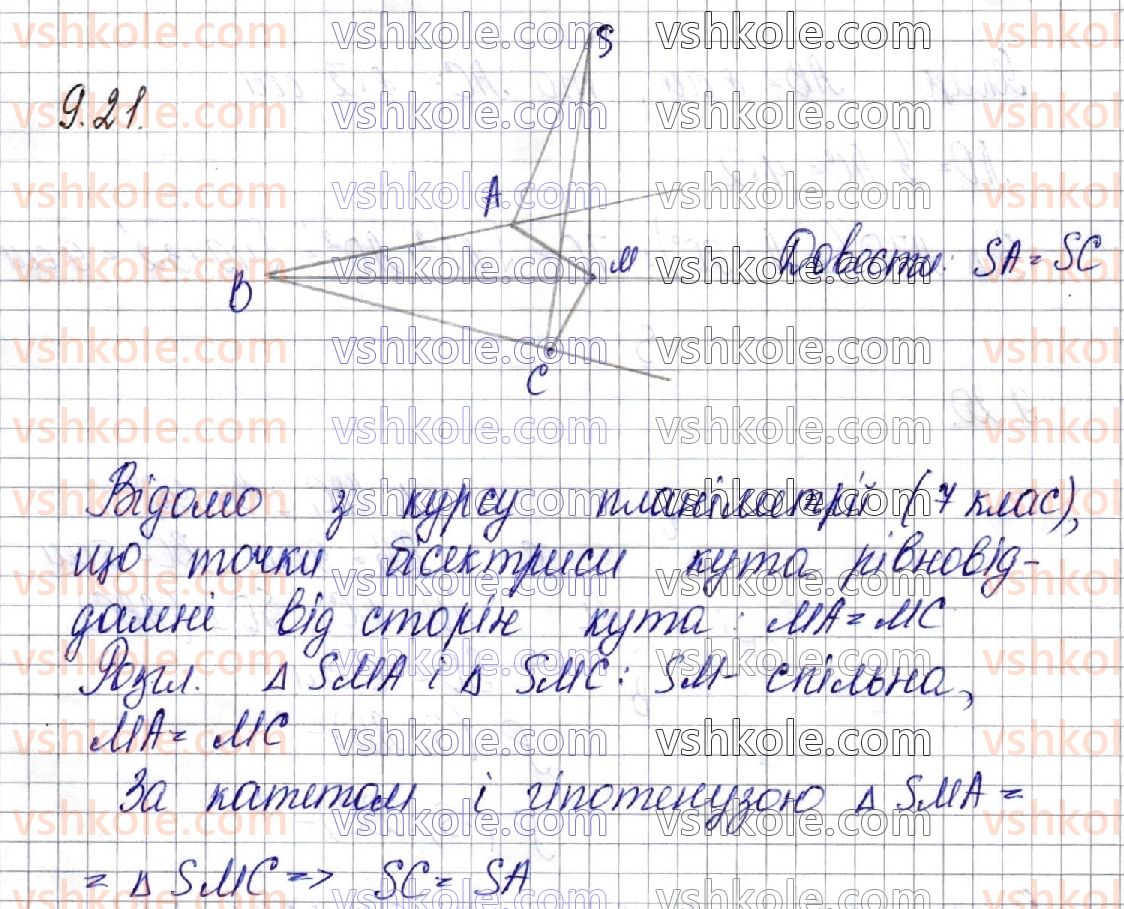 9.21.
S
A
B
M
C
Довести: SA = SC
Відомо з курсу планіметрії (7 клас),
що точки бісектриси кута рівновід-
далені від сторін кута: MA = MC
Розгл. Δ SMA і Δ SMC: SM - спільна,
MA = MC
За катетом і гіпотенузою Δ SMA =
= Δ SMC => SC = SA
vshkole.com